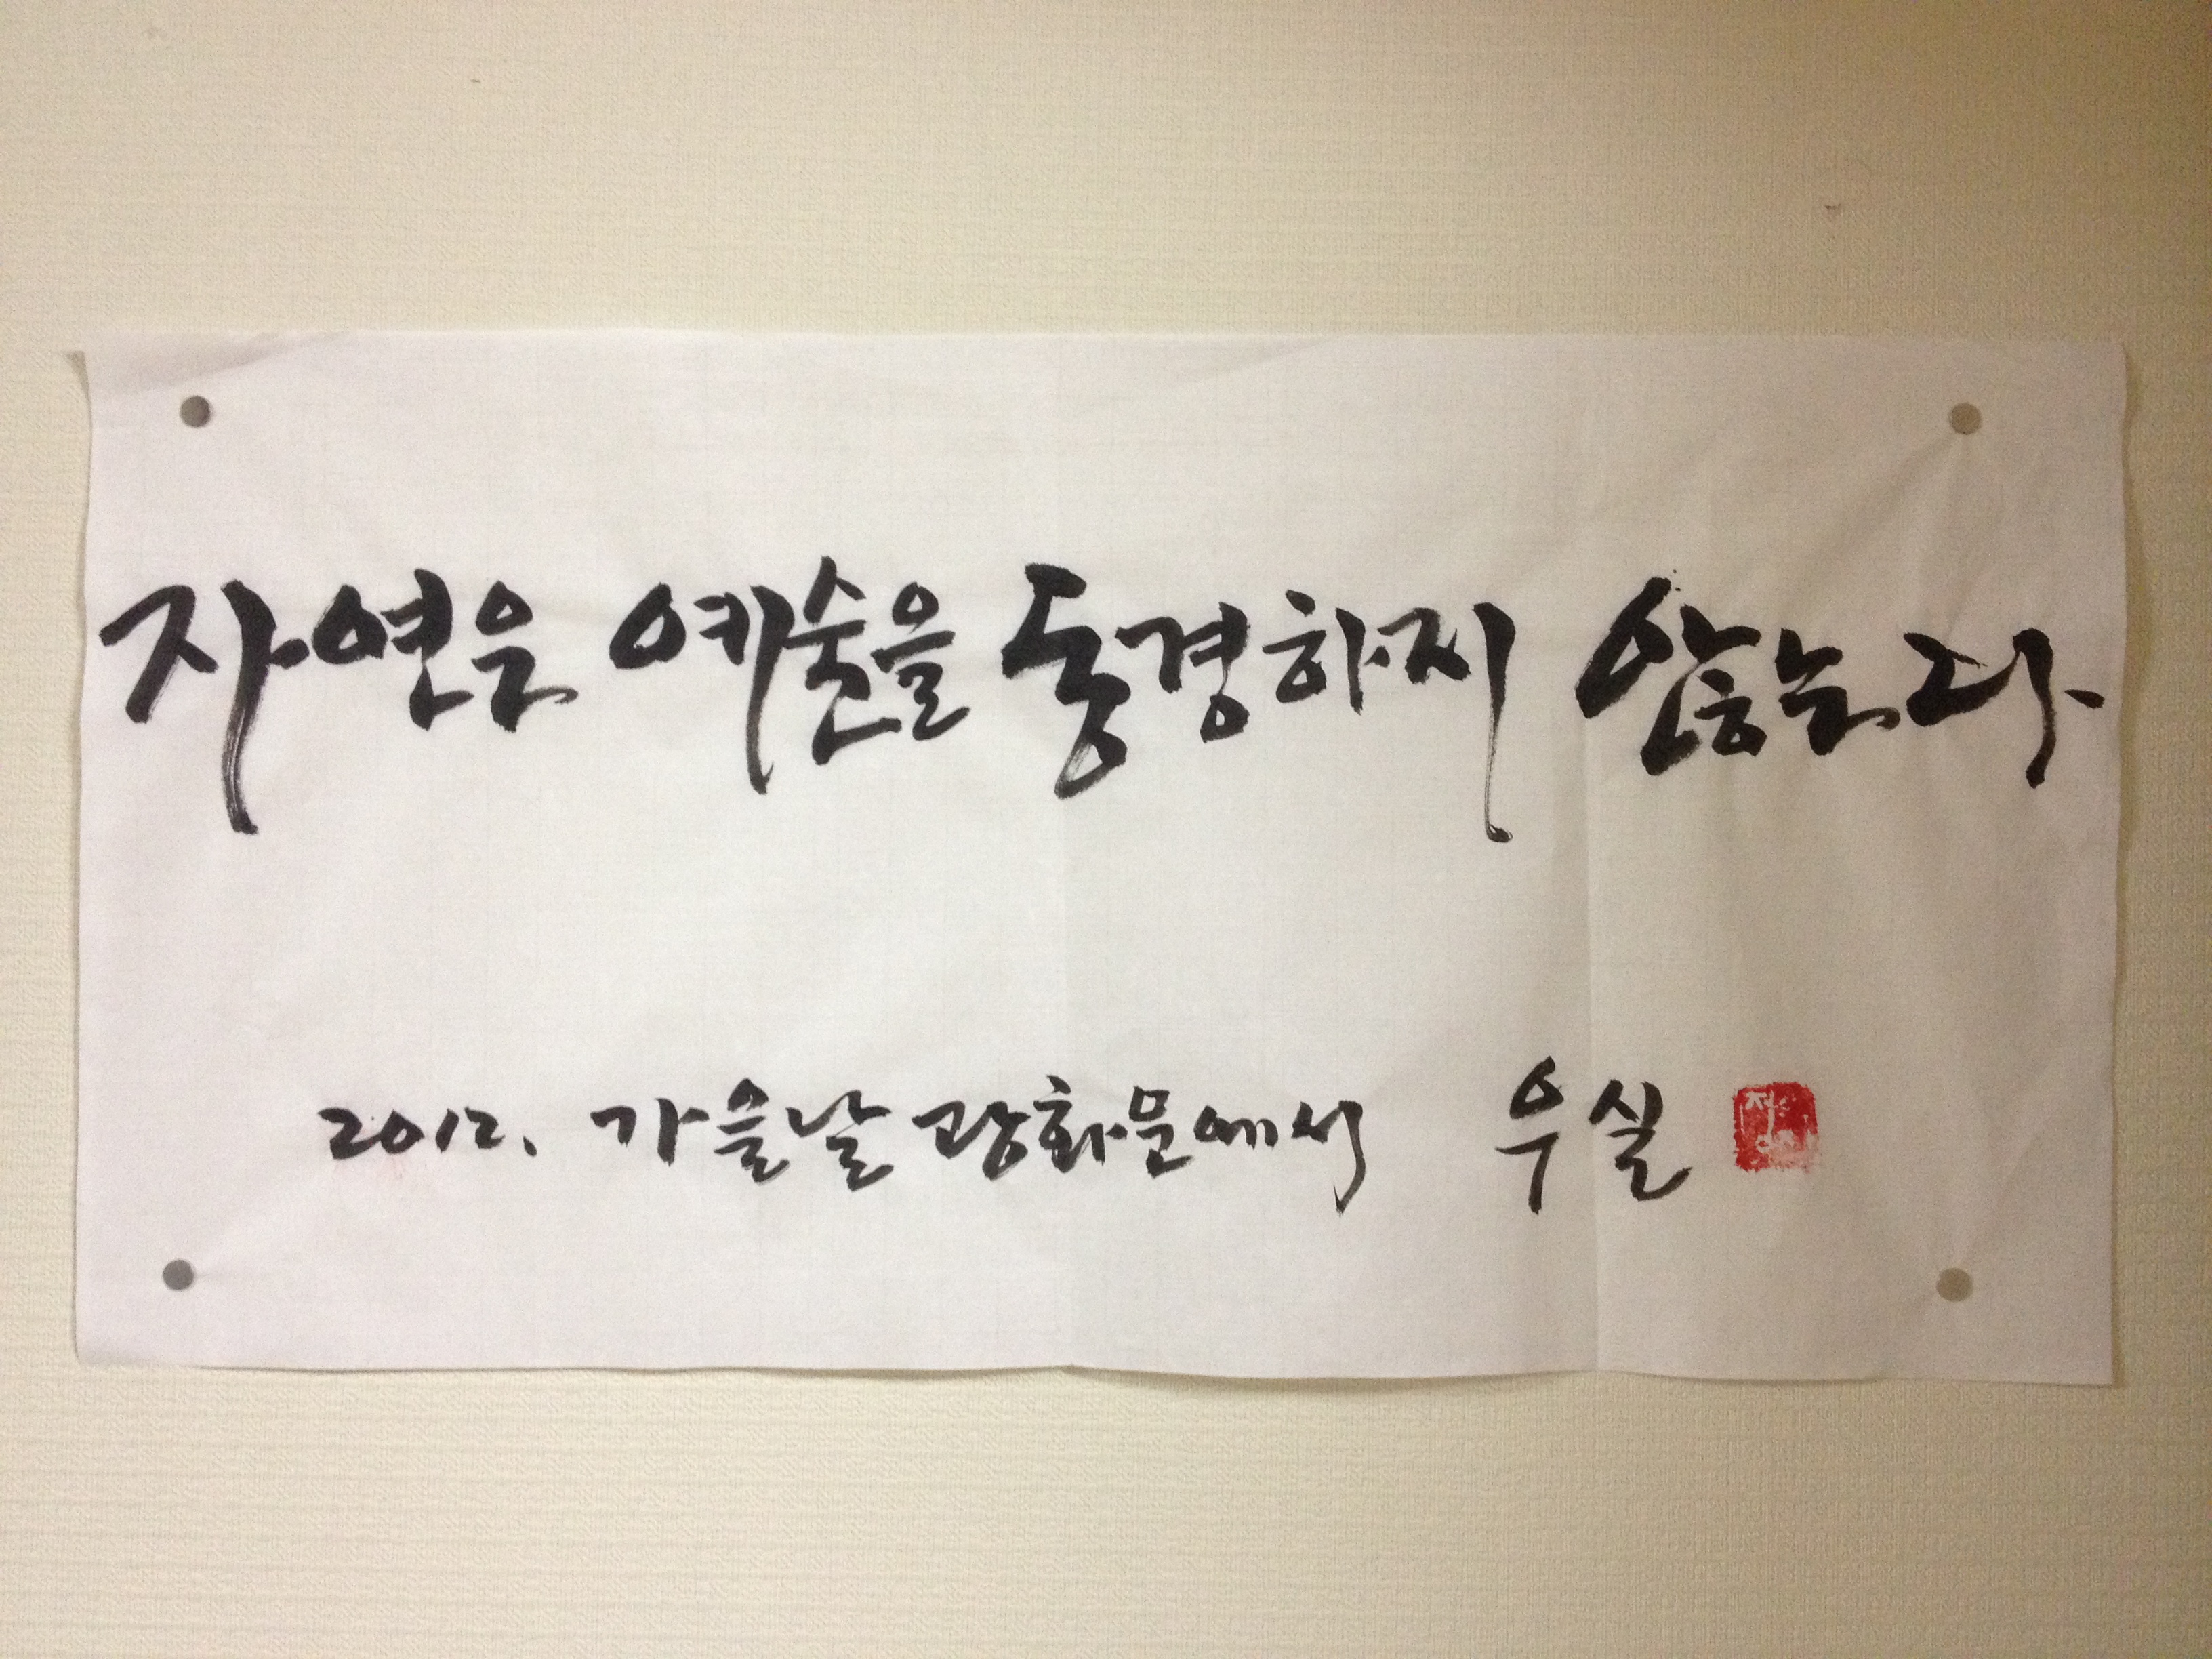 자연은 예술을 동경하지 않는다
2012. 가을날 광화문에서 우실